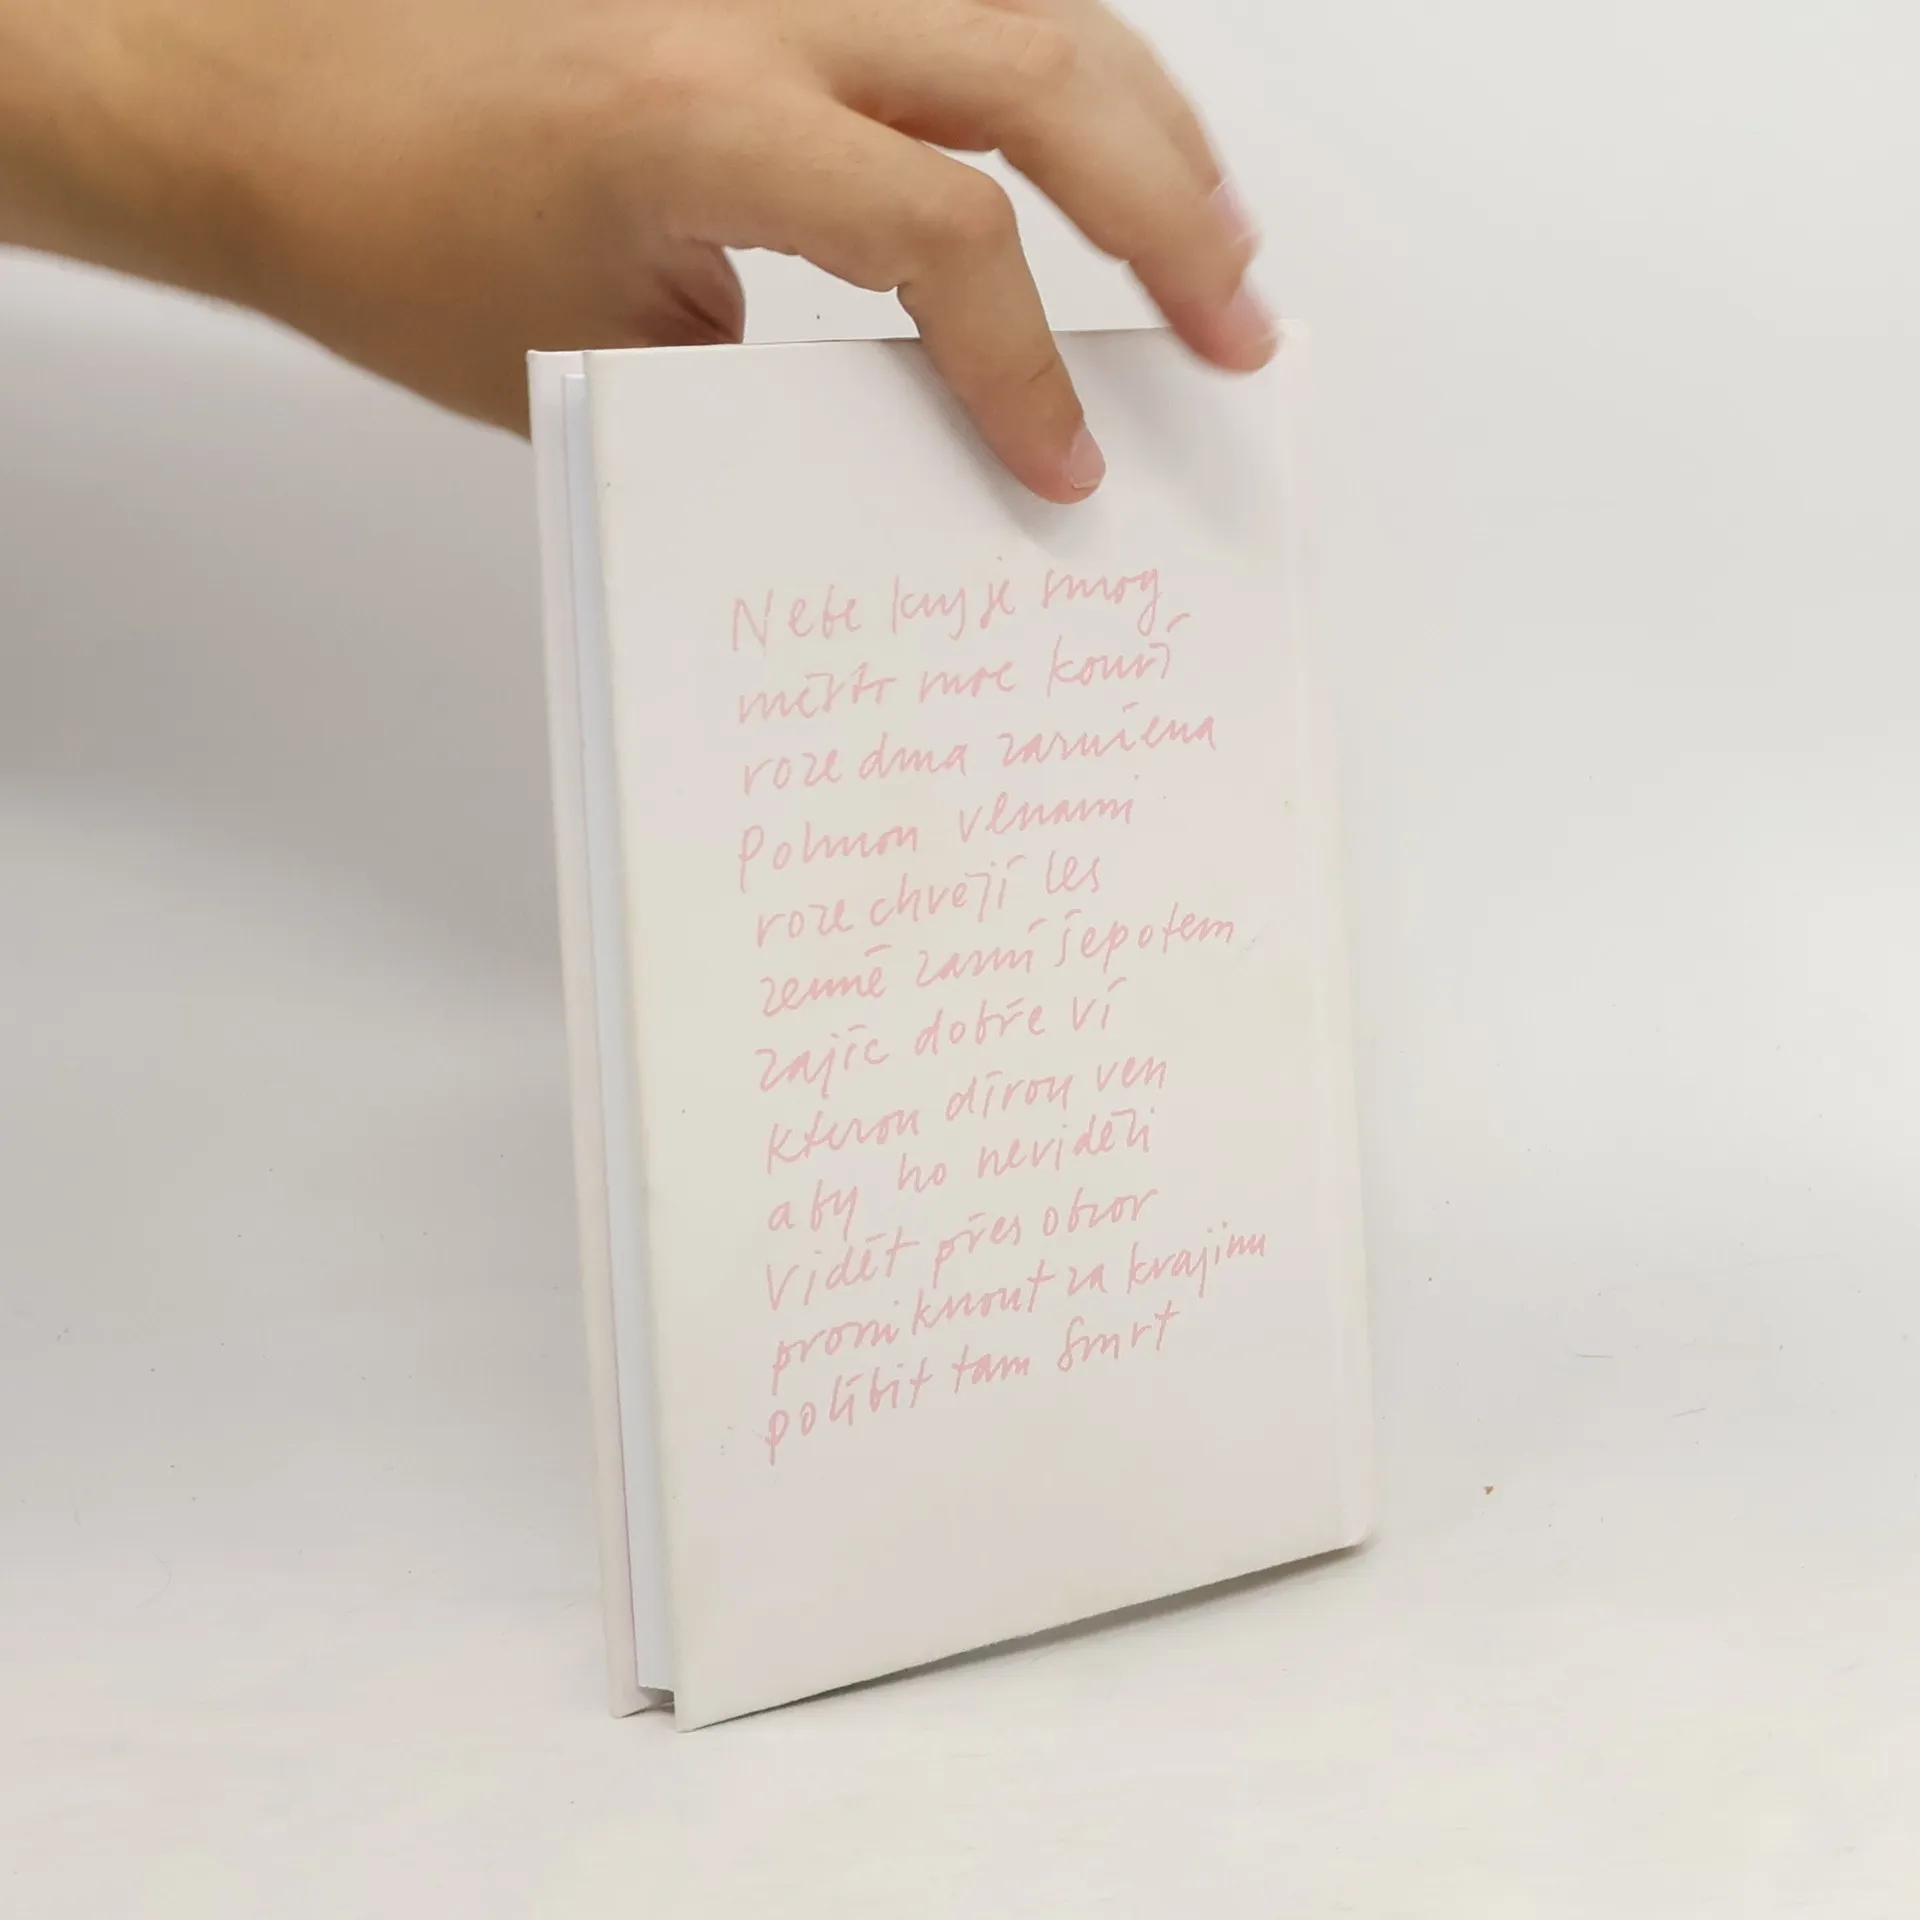 Nebe kryje smog
město mé kouří
rozedma zaručena
Polmou vlnami
rozechvějí les
země zavní šepotem
zajíc dobře ví
kterou dírou ven
aby ho neviděli
Vidět přes obzor
proniknout za krajinu
políbit tam Smrt